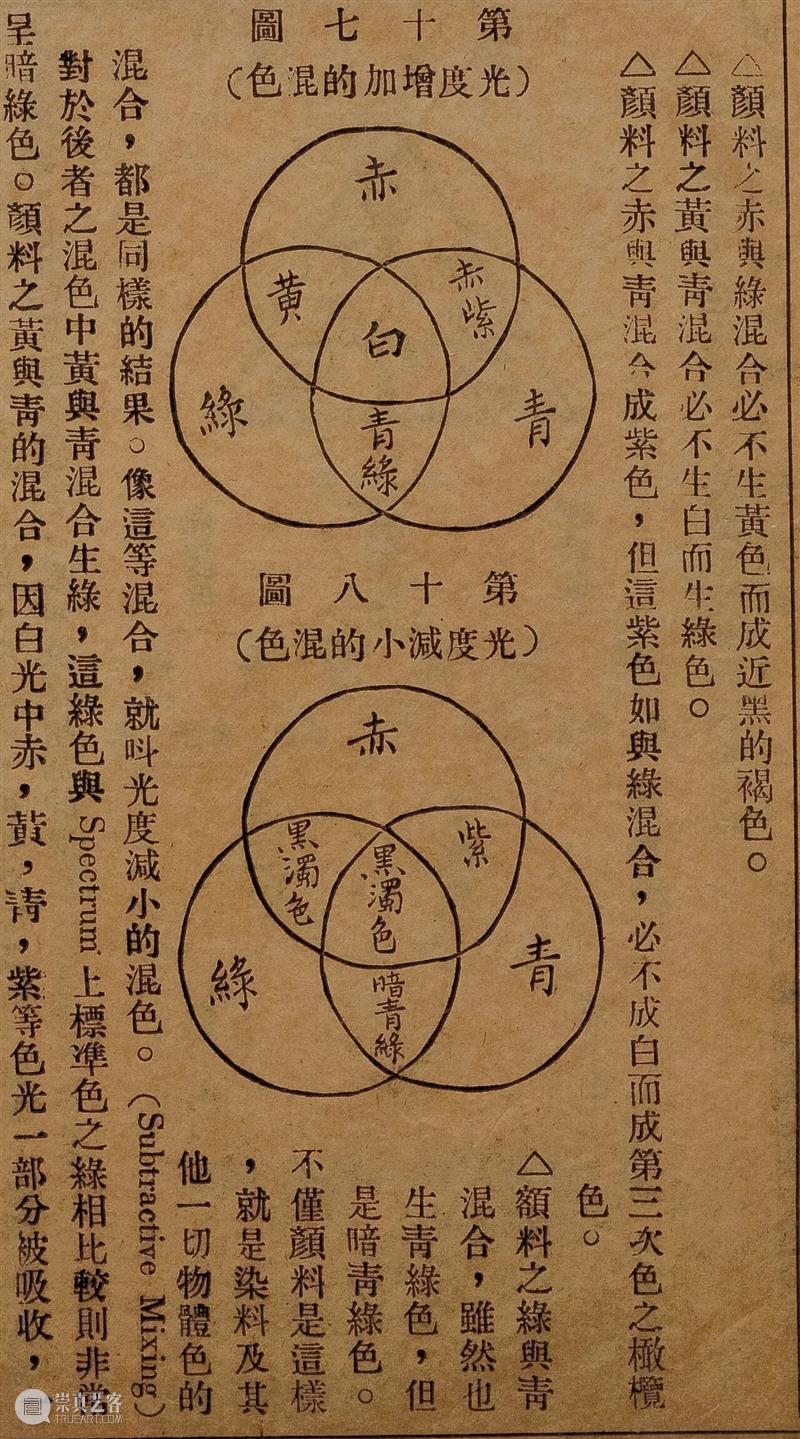 △顏料之赤與綠混合必不生黃色而成近黑的褐色。
△顏料之黃與青混合必不生白而生綠色。
△顏料之赤與靑混合成紫色，但這紫色如與綠混合，必不成白而成第三次色之橄欖
色。
△額料之綠與靑
混合，雖然也
生靑綠色，但
是暗靑綠色。
不僅顏料是這樣
，就是染料及其
他一切物體色的
第十七圖
（光度增加的混色）
赤
黃
赤紫
白
綠
青
青綠
第十八圖
（光度減小的混色）
赤
黑濁色
黑濁色
紫
綠
青
暗青綠
混合，都是同樣的結果。像這等混合，就呌光度減小的混色。（Subtractive Mixing）
對於後者之混色中黃與靑混合生綠，這綠色與Spectrum上標準色之綠相比較則非常
呈暗綠色。顏料之黃與靑的混合，因白光中赤，黃，靑，紫等色光一部分被吸收，
崇真艺客
TRUEART.COM